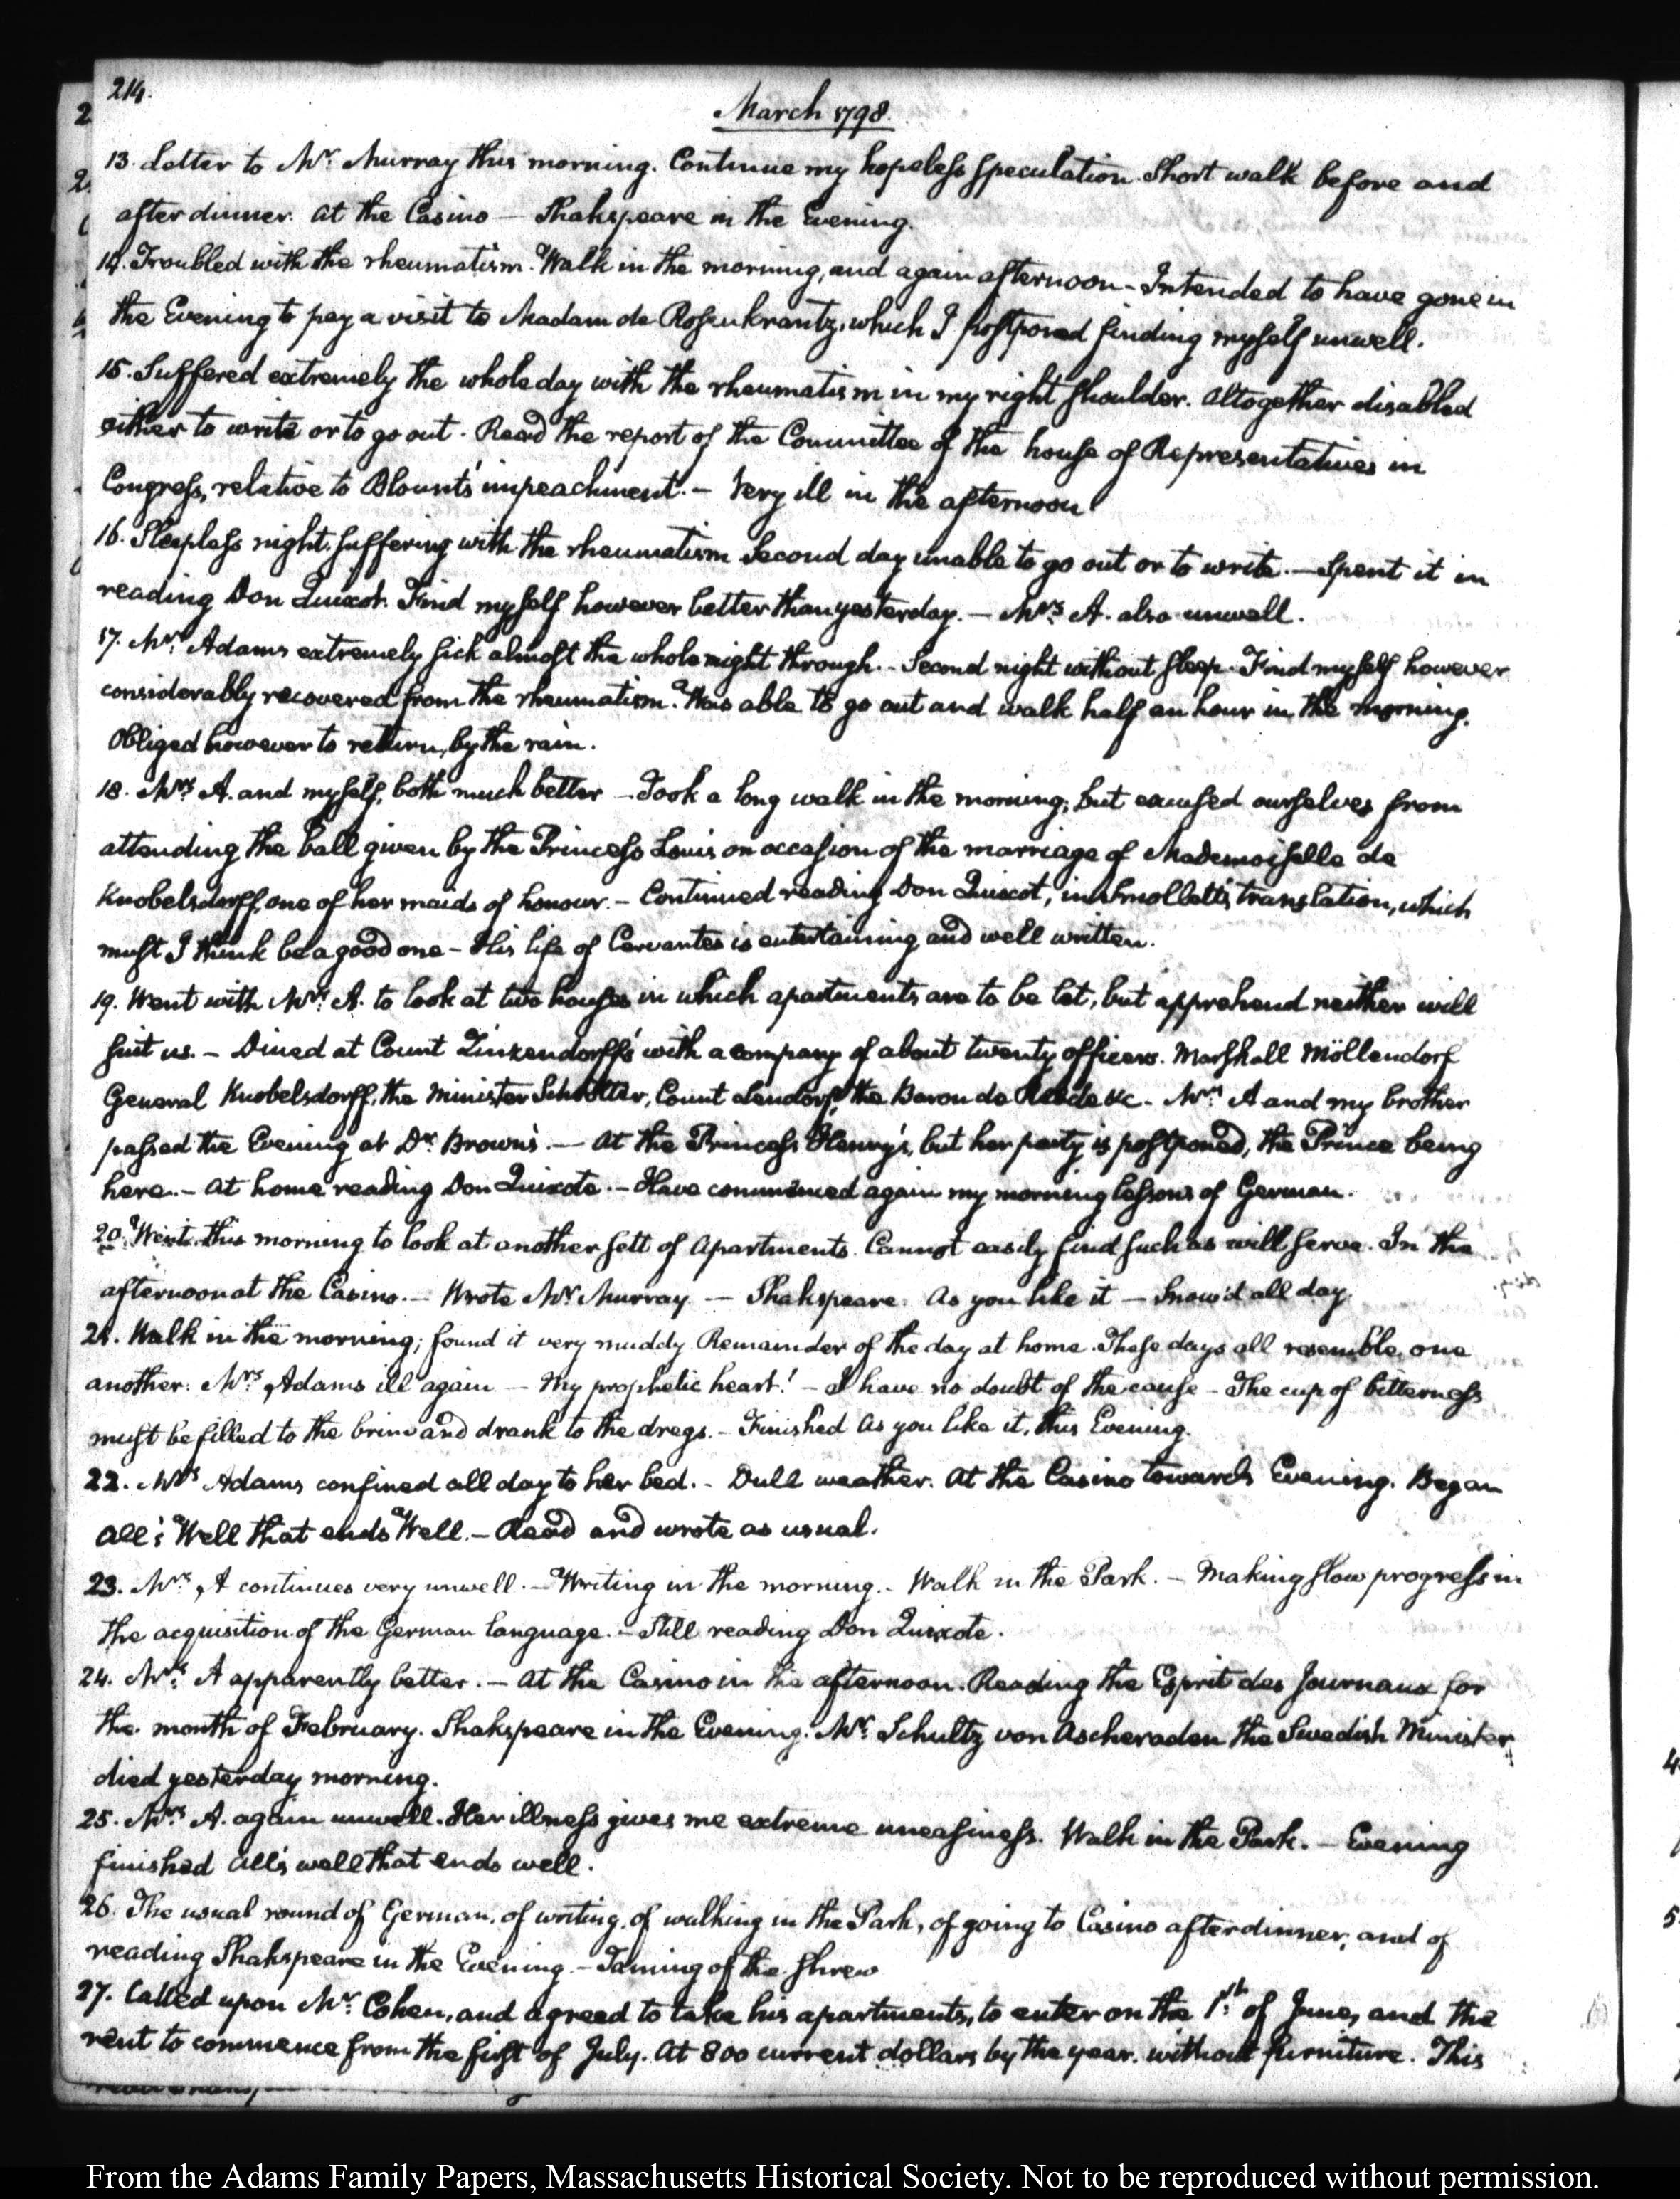 214.
March 1798.
13. Letter to Mr. Murray this morning. Continue my hopeless speculation. Short walk before and
after dinner. At the Casino — Shakspeare in the Evening.
14. Troubled with the rheumatism. Walk in the morning, and again afternoon — Intended to have gone in
the Evening to pay a visit to Madam de Rosenkrantz, which I postponed finding myself unwell.
15. Suffered extremely the whole day with the rheumatism in my right shoulder. Altogether disabled
either to write or to go out. Read the report of the Committee of the house of Representatives in
Congress, relative to Blount's impeachment. — Very ill in the afternoon
16. Sleepless night, suffering with the rheumatism Second day unable to go out or to write. — Spent it in
reading Don Quixot. Find myself however better than yesterday. — Mrs. A. also unwell.
17. Mrs. Adams extremely sick almost the whole night through. — Second night without sleep. Find myself however
considerably recovered from the rheumatism. Was able to go out and walk half an hour in the morning.
Obliged however to return, by the rain.
18. Mrs. A. and myself, both much better — Took a long walk in the morning, but excused ourselves from
attending the ball given by the Princess Louis on occasion of the marriage of Mademoiselle de
Knobelsdorff, one of her maids of honour. — Continued reading Don Quixot, in Smollett's translation, which
must I think be a good one — His life of Cervantes is entertaining and well written.
19. Went with Mrs. A. to look at two houses in which apartments are to be let, but apprehend neither will
suit us. — Dined at Count Zinzendorff's with a company of about twenty officers. Marshall Möllendorf
General Knobelsdorff, the Minister Schrötter, Count Lendorf, the Baron de Reede &c — Mrs. A and my brother
passed the Evening at Dr. Brown's. — At the Princess Henry's, but her party is postponed, the Prince being
here. — At home reading Don Quixote. — Have commenced again my morning lessons of German.
20. Went this morning to look at another sett of Apartments. Cannot easily find such as will serve. In the
afternoon at the Casino. — Wrote Mr. Murray — Shakspeare. As you like it — Snow'd all day.
21. Walk in the morning; found it very muddy. Remainder of the day at home. These days all resemble one
another. Mrs. Adams ill again — My prophetic heart! — I have no doubt of the cause — The cup of bitterness
must be filled to the brim and drank to the dregs. — Finished As you like it, this Evening.
22. Mrs. Adams confined all day to her bed. — Dull weather. At the Casino towards Evening. Began
All's Well that ends Well. — Read and wrote as usual.
23. Mrs. A continues very unwell. — Writing in the morning. — Walk in the Park. — Making slow progress in
the acquisition of the German language. — Still reading Don Quixote.
24. Mrs. A apparently better. — At the Casino in the afternoon. Reading the Esprit des Journaux for
the month of February. Shakspeare in the Evening. Mr. Schultz von Ascheraden the Swedish Minister
died yesterday morning.
25. Mrs. A. again unwell. Her illness gives me extreme uneasiness. Walk in the Park. — Evening
finished All's well that ends well.
26. The usual round of German, of writing, of walking in the Park, of going to Casino after dinner, and of
reading Shakspeare in the Evening — Taming of the Shrew
27. Called upon Mr. Cohen, and agreed to take his apartments, to enter on the 1st. of June, and the
rent to commence from the first of July. At 800 current dollars by the year. without furniture. This
From the Adams Family Papers, Massachusetts Historical Society. Not to be reproduced without permission.